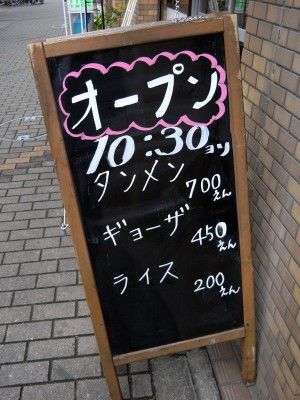 オープン
10:30ヨリ
タンメン
700えん
ギョーザ
450えん
ライス
200えん